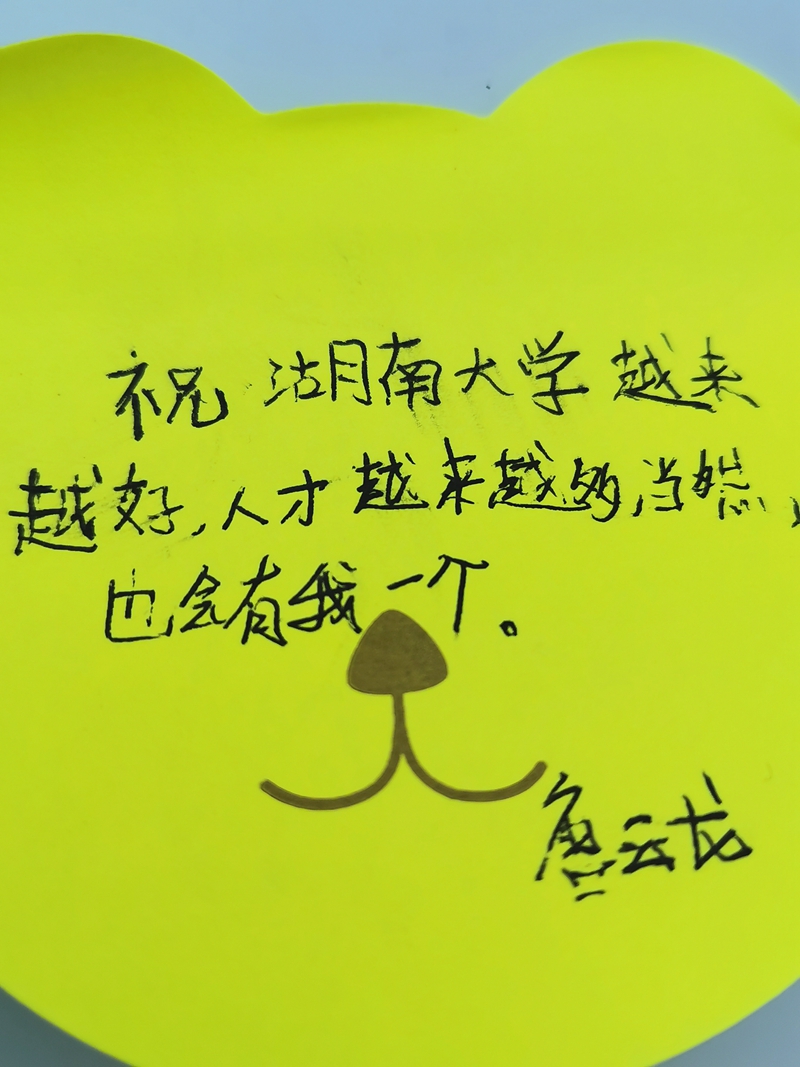 祝 湖南大学 越来
越好,人才越来越多当然,
也会有我一个。
云龙